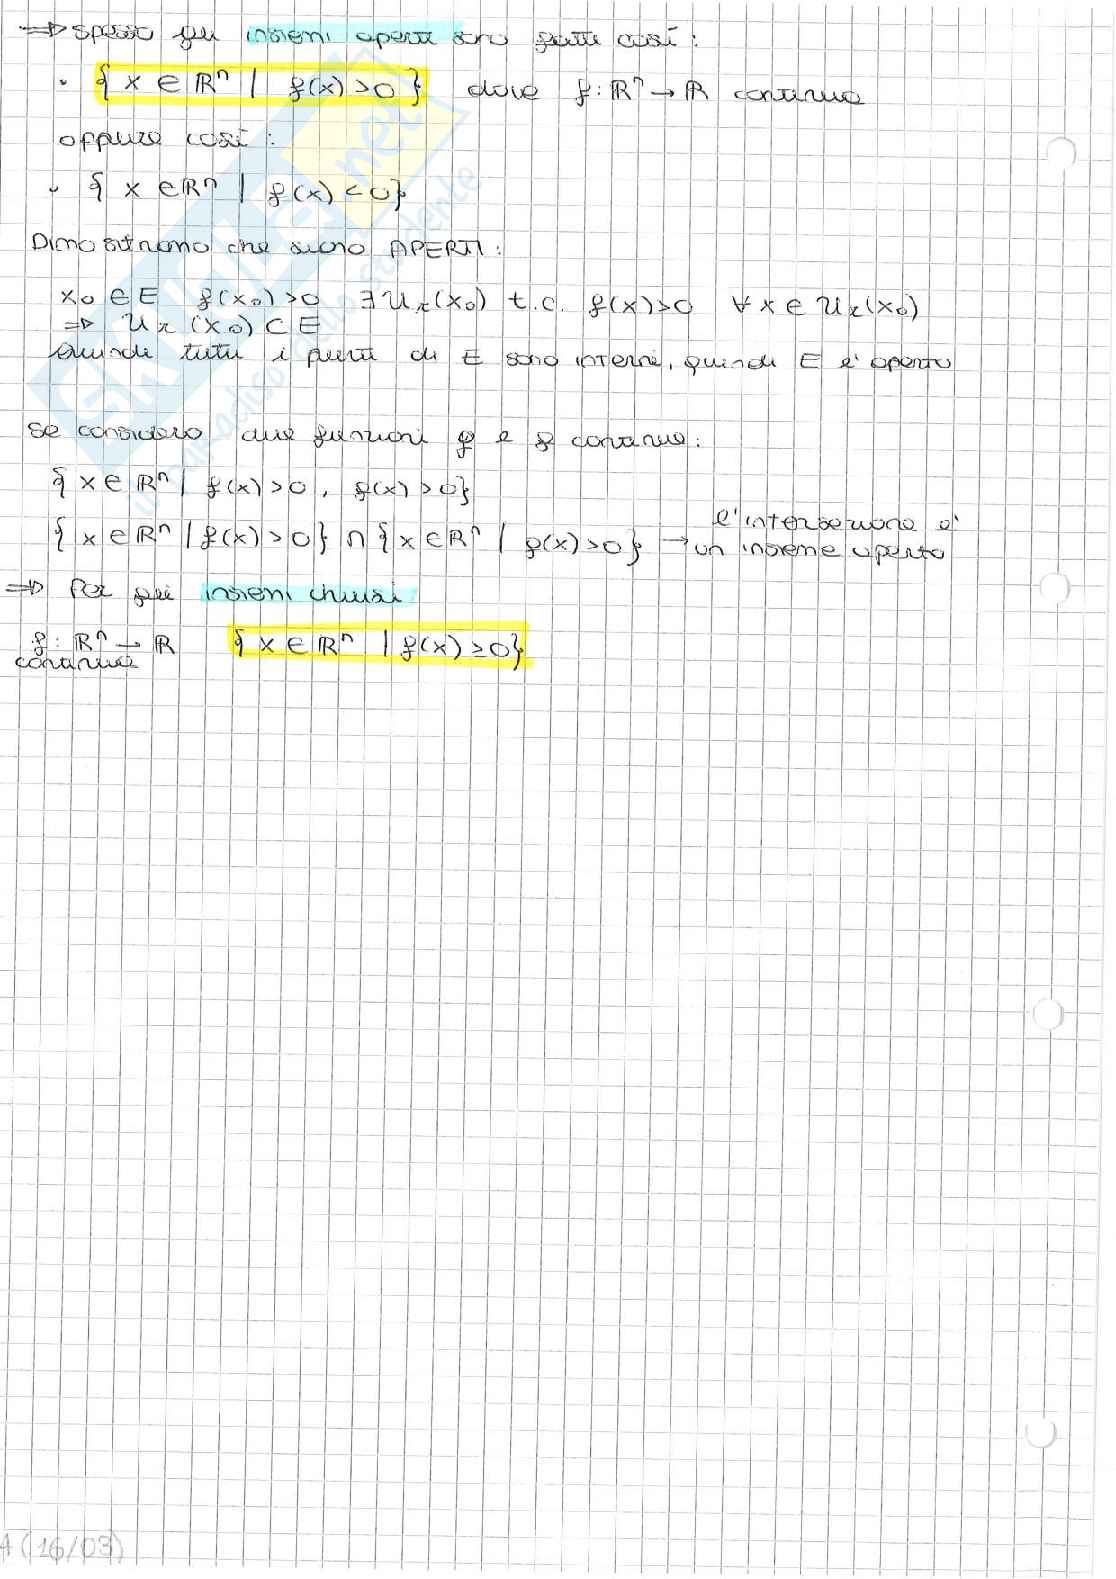 ⇒ Spesso gli insiemi aperti sono fatti così:
• { x ∈ ℝⁿ | f(x) > 0 } dove f: ℝⁿ → ℝ continua
oppure così:
• { x ∈ ℝⁿ | f(x) < 0 }
Dimostriamo che siano APERTI:
x₀ ∈ E f(x₀) > 0 ∃ Ur(x₀) t.c. f(x) > 0 ∀ x ∈ Ur(x₀)
⇒ Ur(x₀) ⊂ E
Quindi tutti i punti di E sono interni, quindi E è aperto
Se considero due funzioni g e f continue:
{ x ∈ ℝⁿ | f(x) > 0, g(x) > 0 }
{ x ∈ ℝⁿ | f(x) > 0 } ∩ { x ∈ ℝⁿ | g(x) > 0 } → l'intersezione è
un insieme aperto
⇒ Per gli insiemi chiusi
f: ℝⁿ → ℝ { x ∈ ℝⁿ | f(x) ≥ 0 }
continua
(16/03)